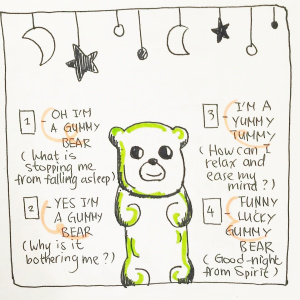 1 - OH I'M
A GUMMY
BEAR
( What is
stopping me
from falling asleep)
2 - YES I'M
A GUMMY
BEAR
(Why is it
bothering me ?)
3 - I'M A
YUMMY
TUMMY
( How can I
relax and
ease my
mind ? )
4 - FUNNY
LUCKY
GUMMY
BEAR
( Good-night
from Spirit )